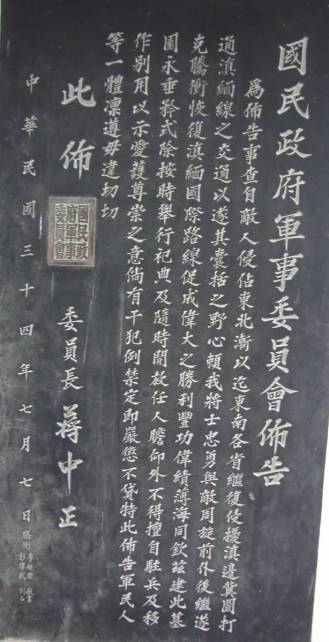 國民政府軍事委員會佈告
為佈告事查自敵人侵佔東北漸以迄東南各省繼復侵擾滇邊冀圖打
通滇緬線之交通以遂其囊括之野心賴我將士忠勇與敵周旋前仆後繼遂
克騰衝恢復滇緬國際路線促成偉大之勝利豐功偉績薄海同欽茲建此墓
園永垂矜式除按時舉行祀典及隨時開放任人瞻仰外不得擅自駐兵及移
作別用以示愛護尊崇之意倘有干犯例禁定即嚴懲不貸特此佈告軍民人
等一體凜遵毋違切切
此佈
委員長 蔣中正
中華民國三十四年七月七日
騰衝